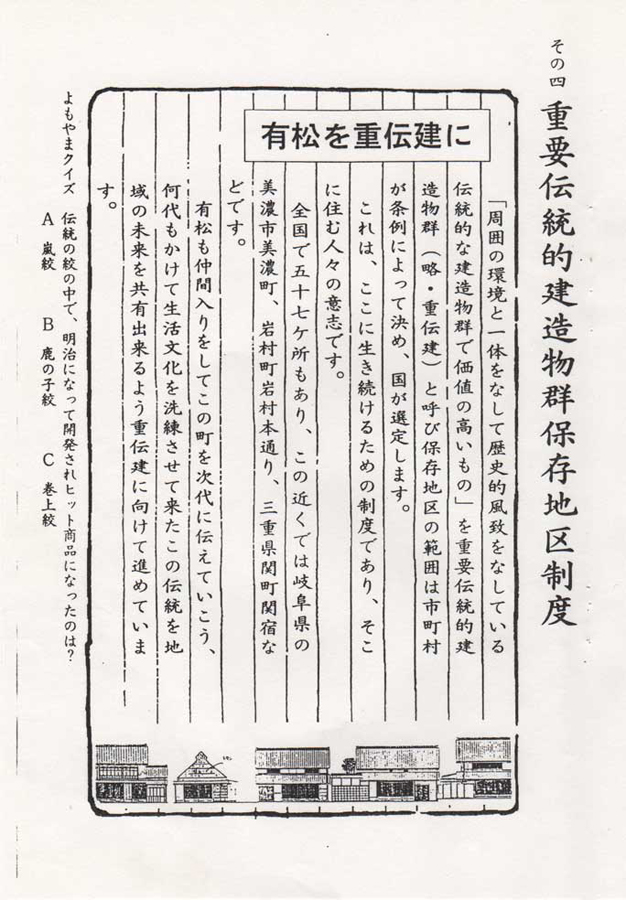 その四 重要伝統的建造物群保存地区制度
有松を重伝建に
「周囲の環境と一体をなして歴史的風致をなしている
伝統的な建造物群で価値の高いもの」を重要伝統的建
造物群（略・重伝建）と呼び保存地区の範囲は市町村
が条例によって決め、国が選定します。
これは、ここに生き続けるための制度であり、そこ
に住む人々の意志です。
全国で五十七ケ所もあり、この近くでは岐阜県の
美濃市美濃町、岩村町岩村本通り、三重県関町関宿な
どです。
有松も仲間入りをしてこの町を次代に伝えていこう、
何代もかけて生活文化を洗練させて来たこの伝統を地
域の未来を共有出来るよう重伝建に向けて進めていま
す。
よもやまクイズ 伝統の絞の中で、明治になって開発されヒット商品になったのは？
A 嵐絞 B 鹿の子絞 C 巻上絞